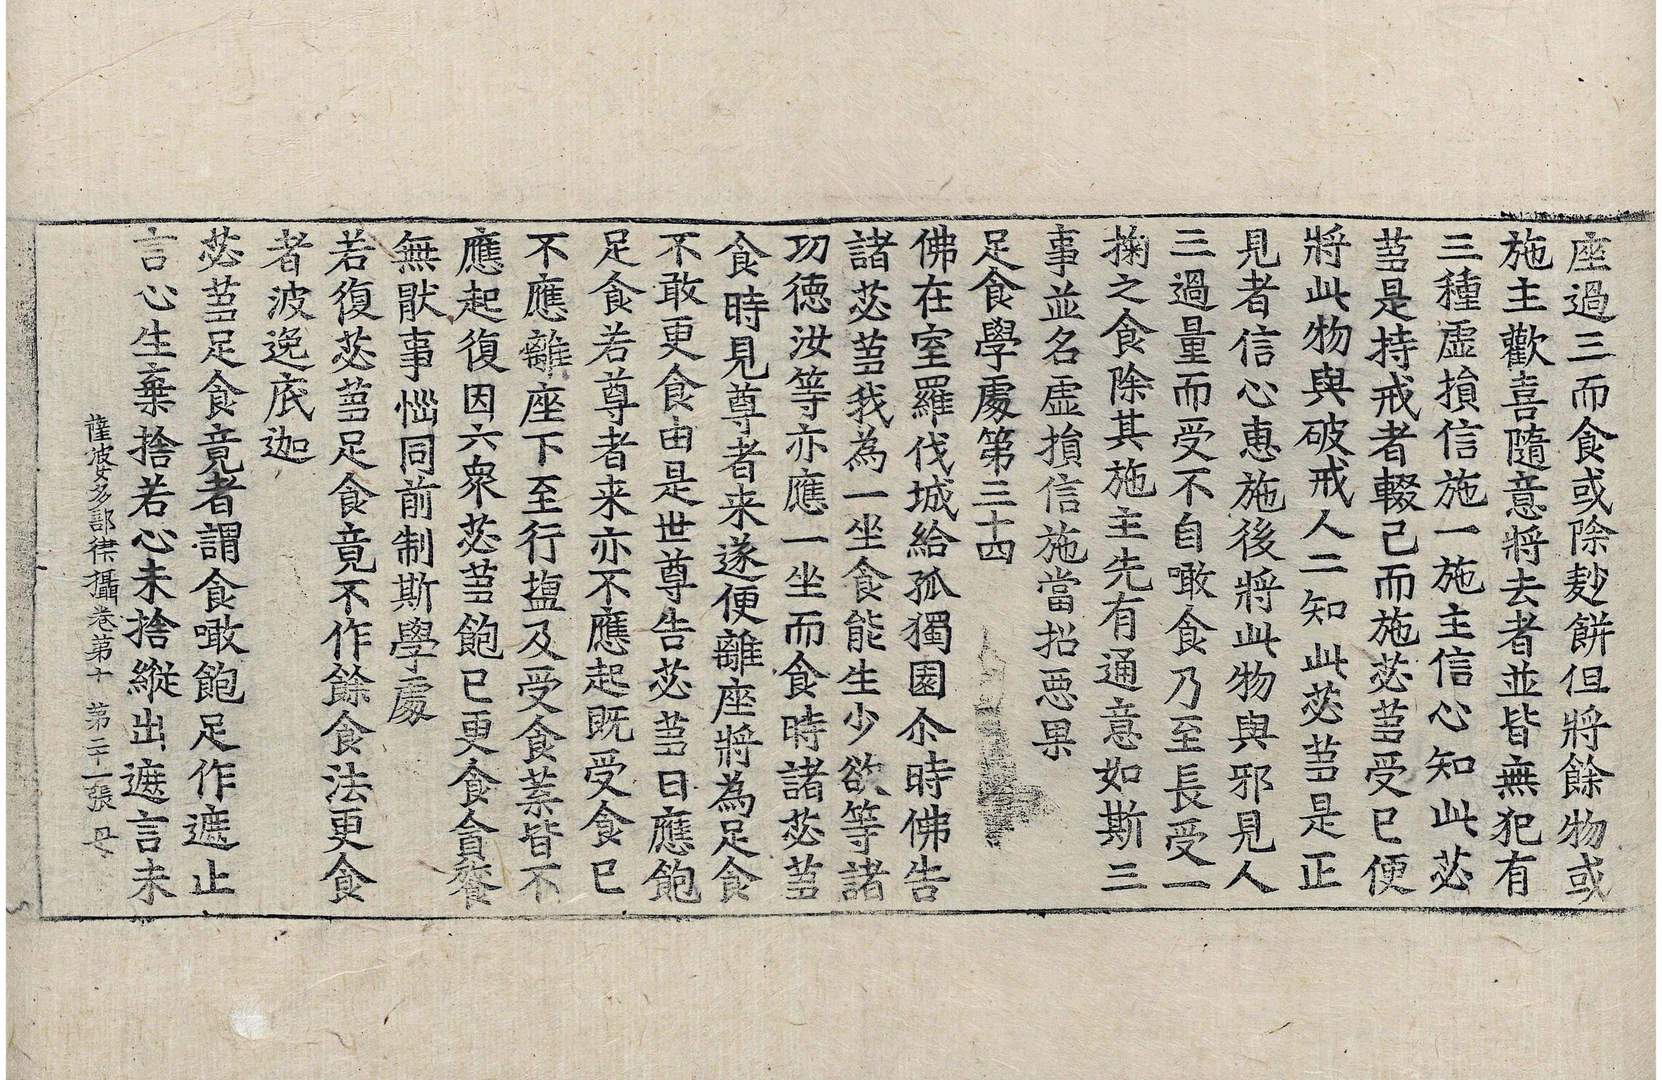 座過三而食或除麨餅但將餘物或
施主歡喜隨意將去者並皆無犯有
三種虛損信施一施主信心知此苾
芻是持戒者輟己而施苾芻受已便
將此物與破戒人二知此苾芻是正
見者信心惠施後將此物與邪見人
三過量而受不自噉食乃至長受一
掬之食除其施主先有通意如斯三
事並名虛損信施當招惡果
足食學處第三十四
佛在室羅伐城給孤獨園尒時佛告
諸苾芻我為一坐食能生少欲等諸
功德汝等亦應一坐而食時諸苾芻
食時見尊者来遂便離座將為足食
不敢更食由是世尊告苾芻曰應飽
足食若尊者来亦不應起既受食已
不應離座下至行塩及受食葉皆不
應起復因六衆苾芻飽已更食貪饕
無猒事惱同前制斯學處
若復苾芻足食竟不作餘食法更食
者波逸底迦
苾芻足食竟者謂食噉飽足作遮止
言心生棄捨若心未捨縱出遮言未
薩婆多部律攝卷第十 第二十一張 母